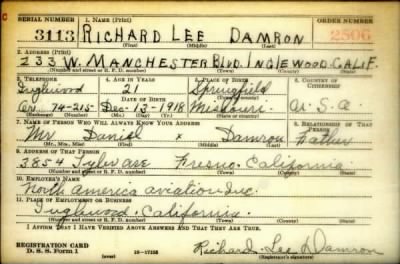 SERIAL NUMBER 1. NAME (Print) ORDER NUMBER
3113 RICHARD LEE DAMRON 2506
(First) (Middle) (Last)
2. ADDRESS (Print)
233 W. MANCHESTER BLVD. INGLEWOOD. CALIF.
(Number and street or R. F. D. number) (Town) (County) (State)
3. TELEPHONE 4. AGE IN YEARS 5. PLACE OF BIRTH 6. COUNTRY OF CITIZENSHIP
Inglewood 21 Springfield
DATE OF BIRTH (Town or county)
Or. 74-215 Dec-13-1918 Missouri. U.S.A.
(Exchange) (Number) (Mo.) (Day) (Yr.) (State or country)
7. NAME OF PERSON WHO WILL ALWAYS KNOW YOUR ADDRESS 8. RELATIONSHIP OF THAT PERSON
Mr Daniel x Damron Father
(Mr., Mrs., Miss) (First) (Middle) (Last)
9. ADDRESS OF THAT PERSON
3854 Tyler ave Fresno. California.
(Number and street or R. F. D. number) (Town) (County) (State)
10. EMPLOYER'S NAME
North America aviation Inc.
11. PLACE OF EMPLOYMENT OR BUSINESS
Inglewood. California.
(Number and street or R. F. D. number) (Town) (County) (State)
I AFFIRM THAT I HAVE VERIFIED ABOVE ANSWERS AND THAT THEY ARE TRUE.
REGISTRATION CARD
D. S. S. Form 1 (over) 16—17105 Richard Lee Damron
(Registrant's signature)